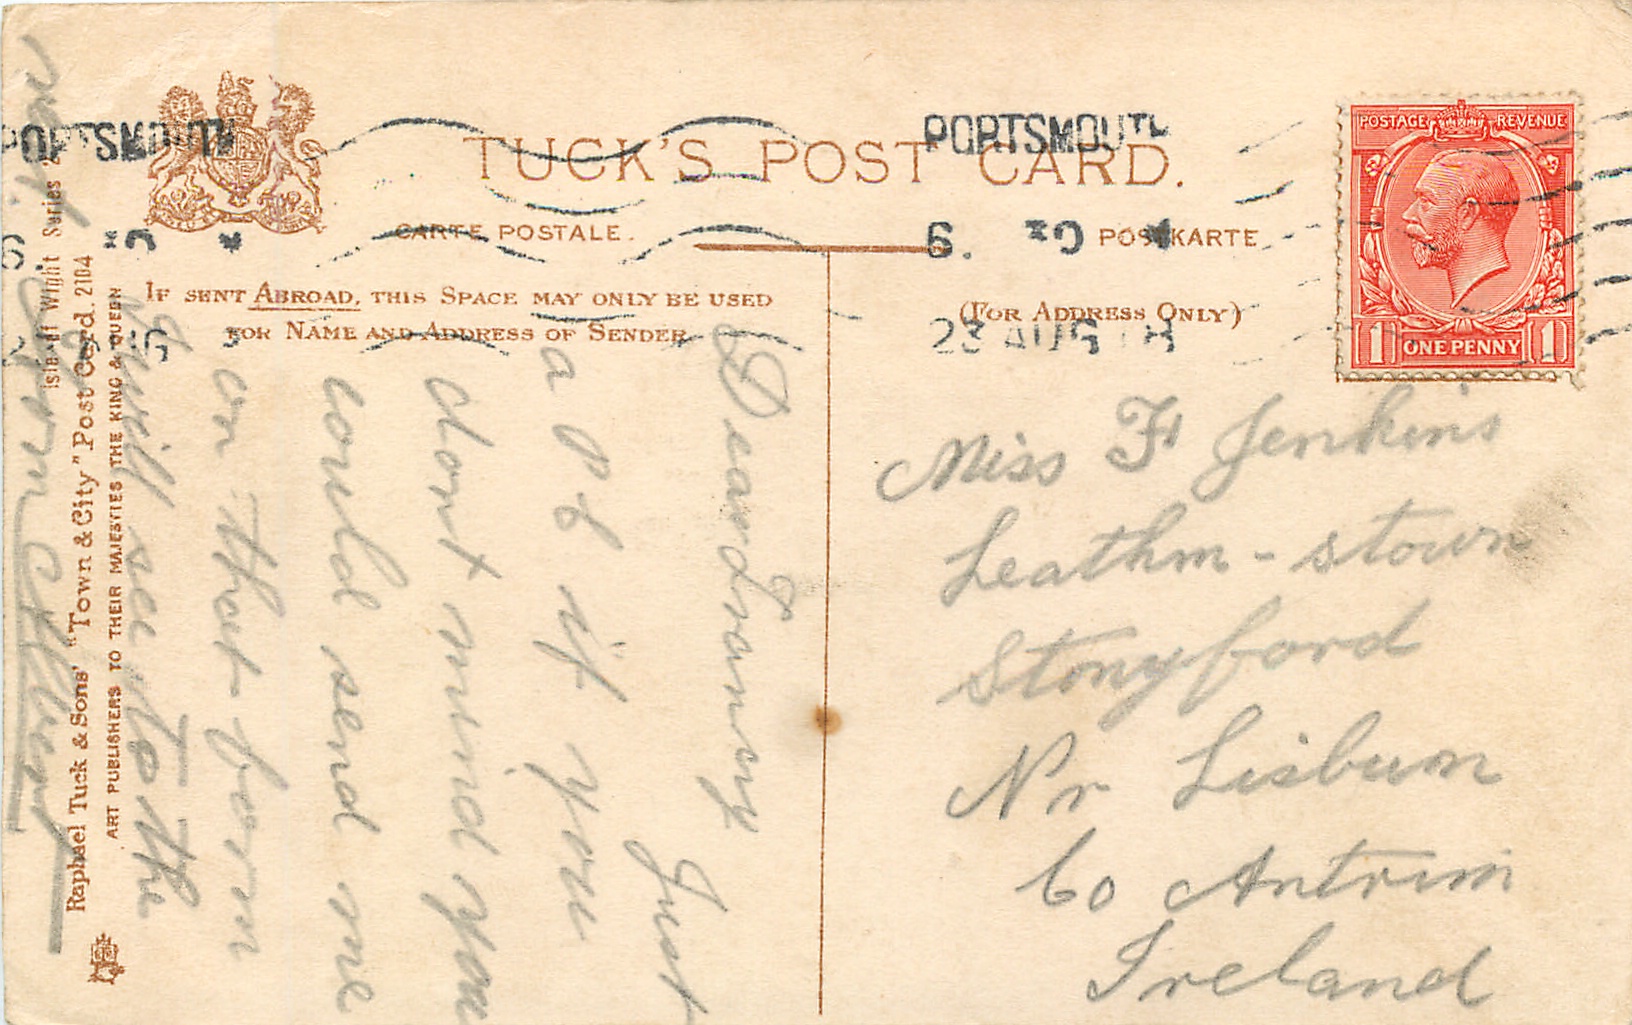 PORTSMOUTH
PORTSMOUTH
TUCK'S POST CARD.
CARTE POSTALE.
POSTKARTE
IF SENT ABROAD, THIS SPACE MAY ONLY BE USED
FOR NAME AND ADDRESS OF SENDER
(FOR ADDRESS ONLY)
23 AUG 18
POSTAGE REVENUE
1 ONE PENNY 1
Dear Franny
Just
a P C if you
dont mind you
could send me
on that form
I will see to the
rest
Isle of Wight Series
Raphael Tuck & Sons' "Town & City" Post Card. 2104
ART PUBLISHERS TO THEIR MAJESTIES THE KING & QUEEN
Miss F Jenkins
Leathm - stown
Stonyford
Nr Lisburn
Co Antrim
Ireland